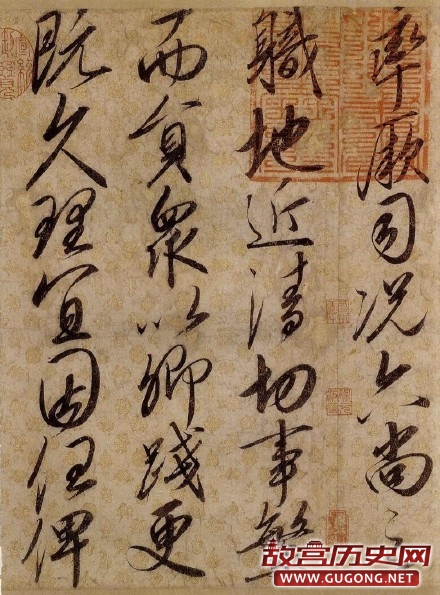 率厥司况六尚之
職地近清切事繁
而員衆以卿踐更
既久理宜因任俾
故宫历史网
WWW.GUGONG.NET